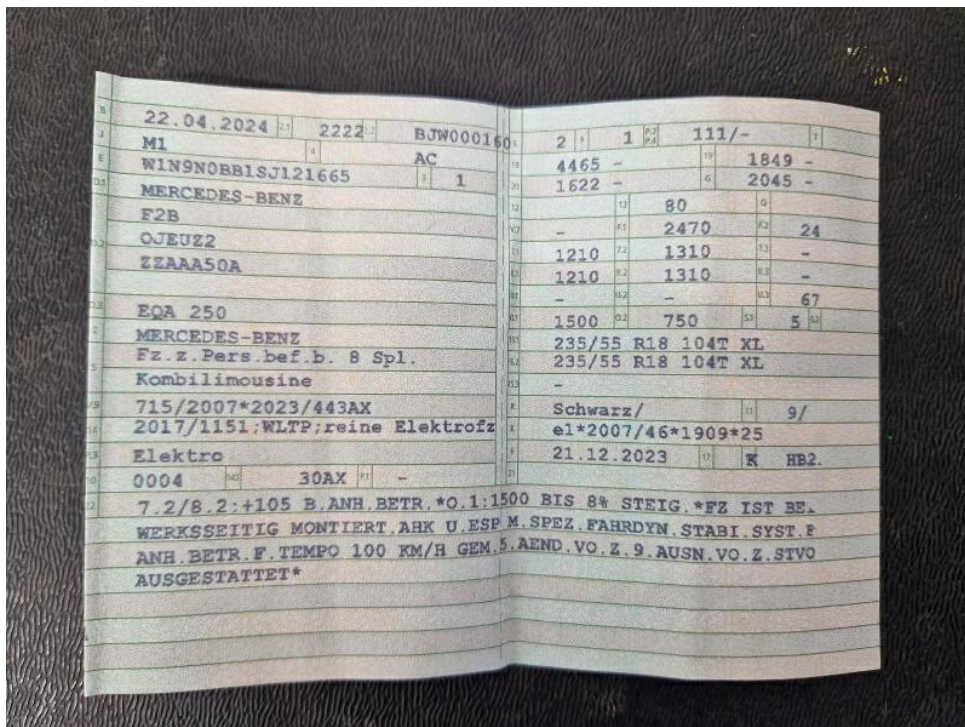 B 22.04.2024 2.1 2222 2.2 BJW000160
J M1 4 AC
E W1N9N0BB1SJ121665 3 1
D.1 MERCEDES-BENZ
F2B
D.2 OJEUZ2
ZZAAA50A
D.3 EQA 250
2 MERCEDES-BENZ
Fz.z.Pers.bef.b. 8 Spl.
5 Kombilimousine
V.9 715/2007*2023/443AX
14 2017/1151;WLTP;reine Elektrofz
P.3 Elektro
10 0004 14.1 30AX P.1 -
L 2 9 1 P.2 P.4 111/- T
18 4465 - 19 1849 -
20 1622 - G 2045 -
12 13 80 Q
V.7 - F.1 2470 F.2 24
7.1 1210 7.2 1310 7.3 -
8.1 1210 8.2 1310 8.3 -
U.1 - U.2 - U.3 67
O.1 1500 O.2 750 S.1 5 S.2
15.1 235/55 R18 104T XL
15.2 235/55 R18 104T XL
15.3 -
R Schwarz/ 11 9/
K e1*2007/46*1909*25
6 21.12.2023 17 K HB2.
21
22 7.2/8.2:+105 B.ANH.BETR.*O.1:1500 BIS 8% STEIG.*FZ IST BE.
WERKSSEITIG MONTIERT.AHK U.ESP M.SPEZ.FAHRDYN.STABI.SYST.F
ANH.BETR.F.TEMPO 100 KM/H GEM.5.AEND.VO.Z.9.AUSN.VO.Z.STVO
AUSGESTATTET*